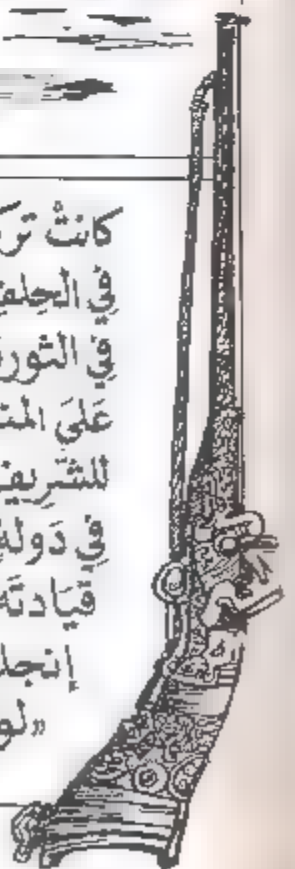 كانتْ تر
فِي الحِلف
فِي الثورة
عَلىَ المن
للشريف
فِي دَولة
قيَادتَه
إنجل
«لو